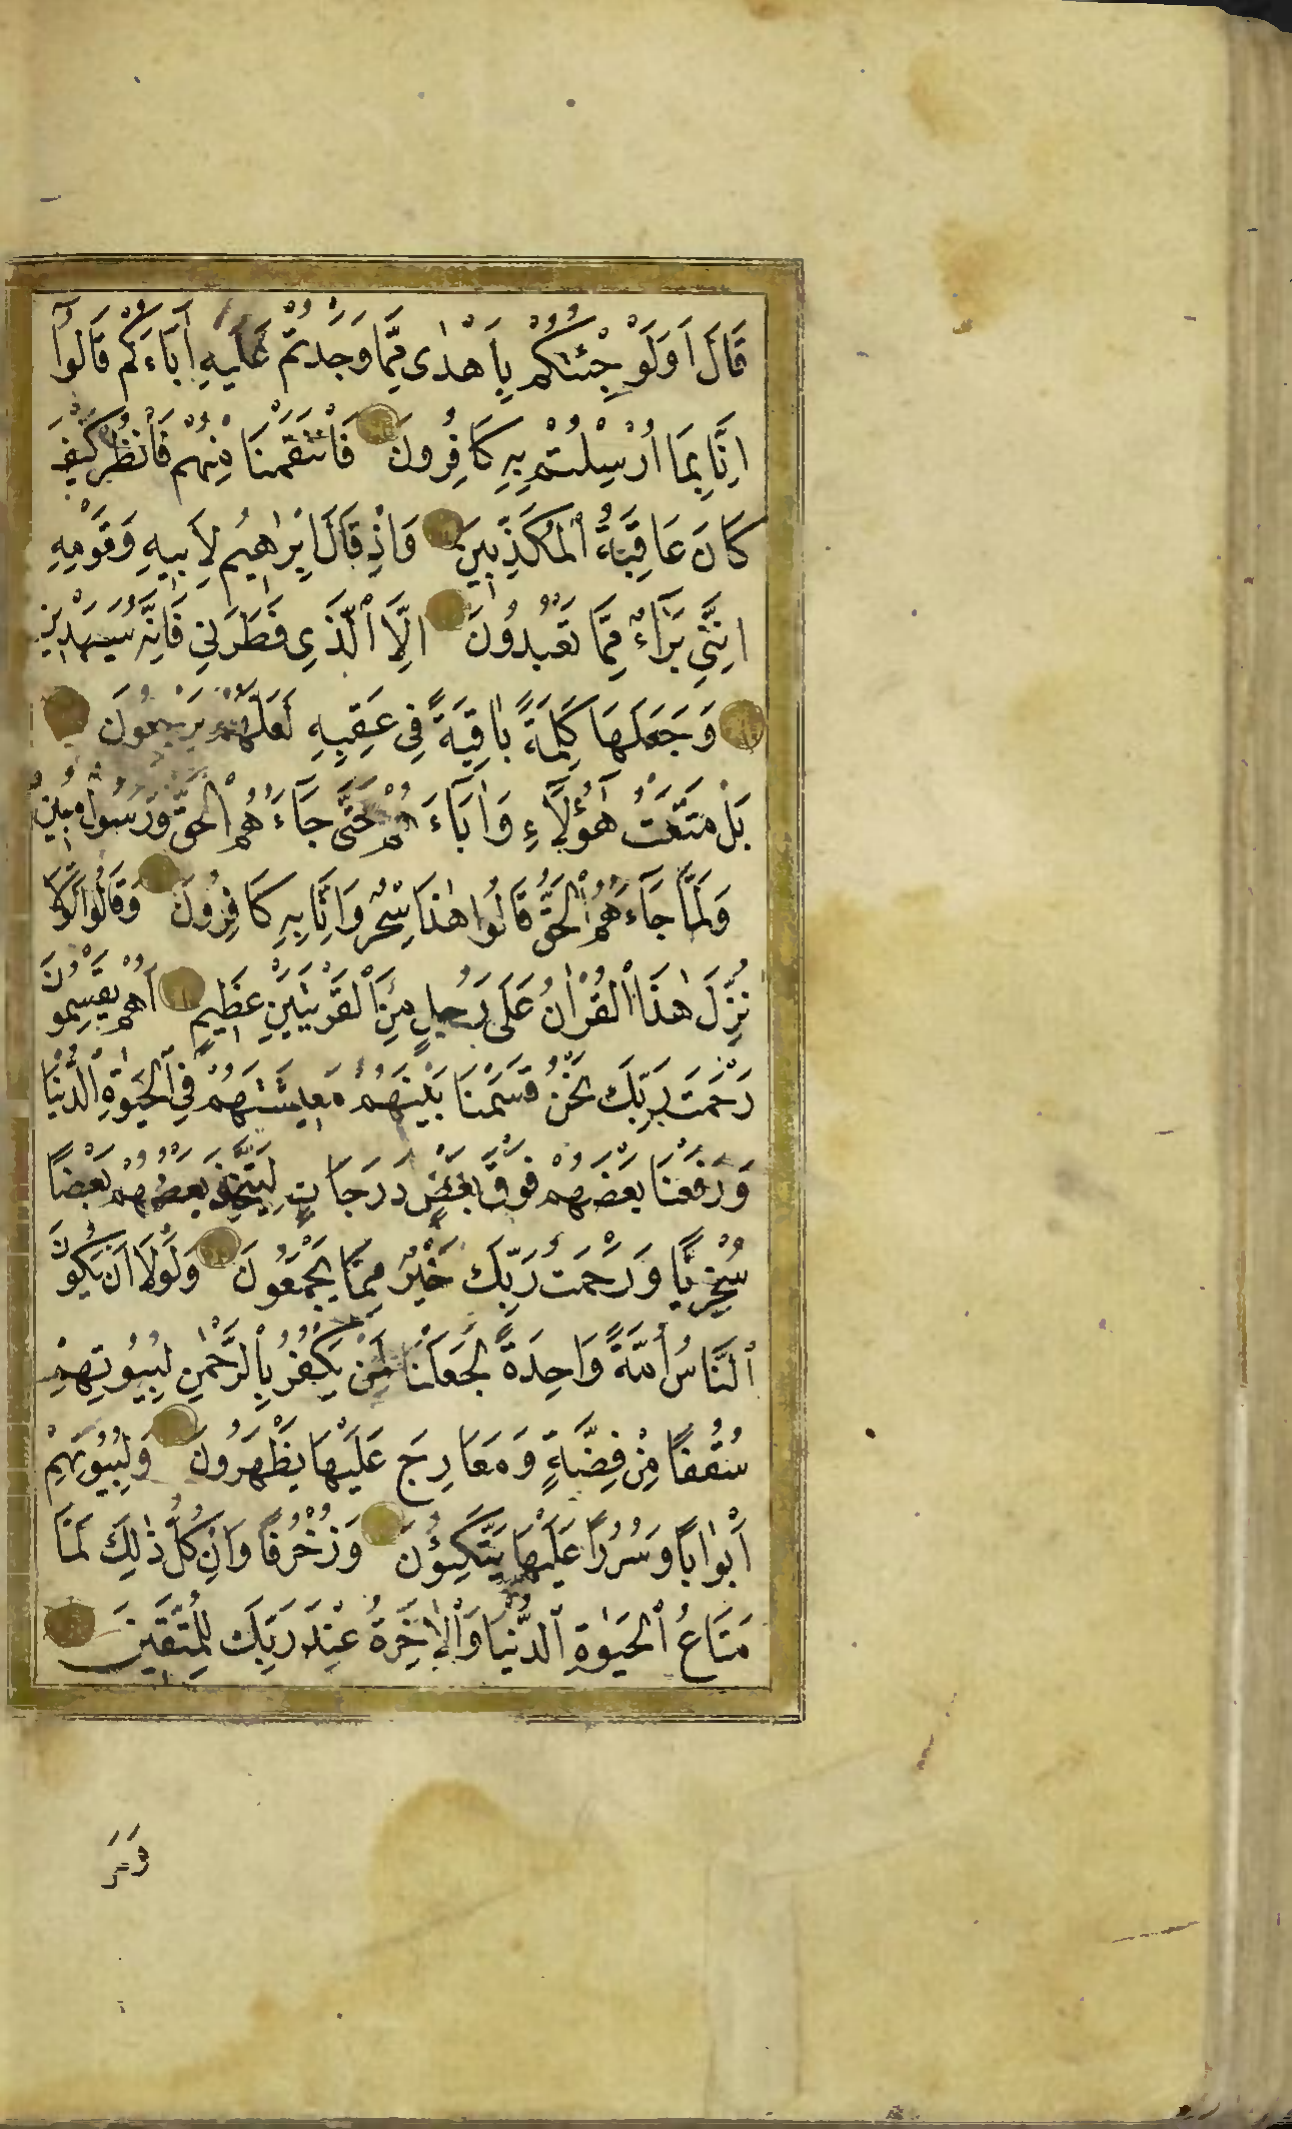 قَالَ اَوَلَوْ جِئْتُكُمْ بِاَهْدٰى مِمَّا وَجَدْتُمْ عَلَيْهِ اٰبَاءَكُمْ قَالُوٓا
اِنَّا بِمَا اُرْسِلْتُمْ بِهِ كَافِرُونَ فَانْتَقَمْنَا مِنْهُمْ فَانْظُرْ كَيْفَ
كَانَ عَاقِبَةُ ٱلْمُكَذِّبِينَ وَاِذْ قَالَ اِبْرٰاهِيمُ لِاَبِيهِ وَقَوْمِهِ
اِنَّنِي بَرَٓاءٌ مِمَّا تَعْبُدُونَ اِلَّا ٱلَّذِي فَطَرَنِي فَاِنَّهُ سَيَهْدِينِ
وَجَعَلَهَا كَلِمَةً بٰاقِيَةً فِي عَقِبِهِ لَعَلَّهُمْ يَرْجِعُونَ
بَلْ مَتَّعْتُ هٰٓؤُلَٓاءِ وَاٰبَاءَهُمْ حَتّٰى جَٓاءَهُمُ ٱلْحَقُّ وَرَسُولٌ مُبِينٌ
وَلَمَّا جَٓاءَهُمُ ٱلْحَقُّ قَالُوا هٰذَا سِحْرٌ وَاِنَّا بِهِ كَافِرُونَ وَقَالُوا لَوْلَا
نُزِّلَ هٰذَا ٱلْقُرْاٰنُ عَلَى رَجُلٍ مِنَ ٱلْقَرْيَتَيْنِ عَظِيمٍ اَهُمْ يَقْسِمُونَ
رَحْمَتَ رَبِّكَ نَحْنُ قَسَمْنَا بَيْنَهُمْ مَعِيشَتَهُمْ فِي ٱلْحَيٰوةِ ٱلدُّنْيَا
وَرَفَعْنَا بَعْضَهُمْ فَوْقَ بَعْضٍ دَرَجَاتٍ لِيَتَّخِذَ بَعْضُهُمْ بَعْضًا
سُخْرِيًّا وَرَحْمَتُ رَبِّكَ خَيْرٌ مِمَّا يَجْمَعُونَ وَلَوْلَا اَنْ يَكُونَ
ٱلنَّاسُ اُمَّةً وَاحِدَةً لَجَعَلْنَا لِمَنْ يَكْفُرُ بِالرَّحْمٰنِ لِبُيُوتِهِمْ
سُقُفًا مِنْ فِضَّةٍ وَمَعَارِجَ عَلَيْهَا يَظْهَرُونَ وَلِبُيُوتِهِمْ
اَبْوٰابًا وَسُرُرًا عَلَيْهَا يَتَّكِؤُنَ وَزُخْرُفًا وَاِنْ كُلُّ ذٰلِكَ لَمَّا
مَتَاعُ ٱلْحَيٰوةِ ٱلدُّنْيَا وَٱلْاٰخِرَةُ عِنْدَ رَبِّكَ لِلْمُتَّقِينَ
وَمَنْ